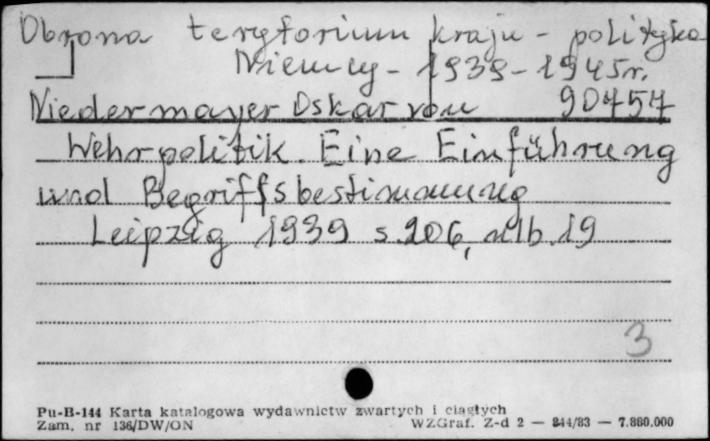 Obrona terytorium kraju - polityka
Niemcy - 1939-1945r.
Niedermayer Oskar von 90457
Wehrpolitik. Eine Einführung
und Begriffsbestimmung
Leipzig 1939 s. 206, nlb. 19
3
Pu-B-144 Karta katalogowa wydawnictw zwartych i ciągłych
Zam. nr 136/DW/ON WZGraf. Z-d 2 — 244/83 — 7.880.000